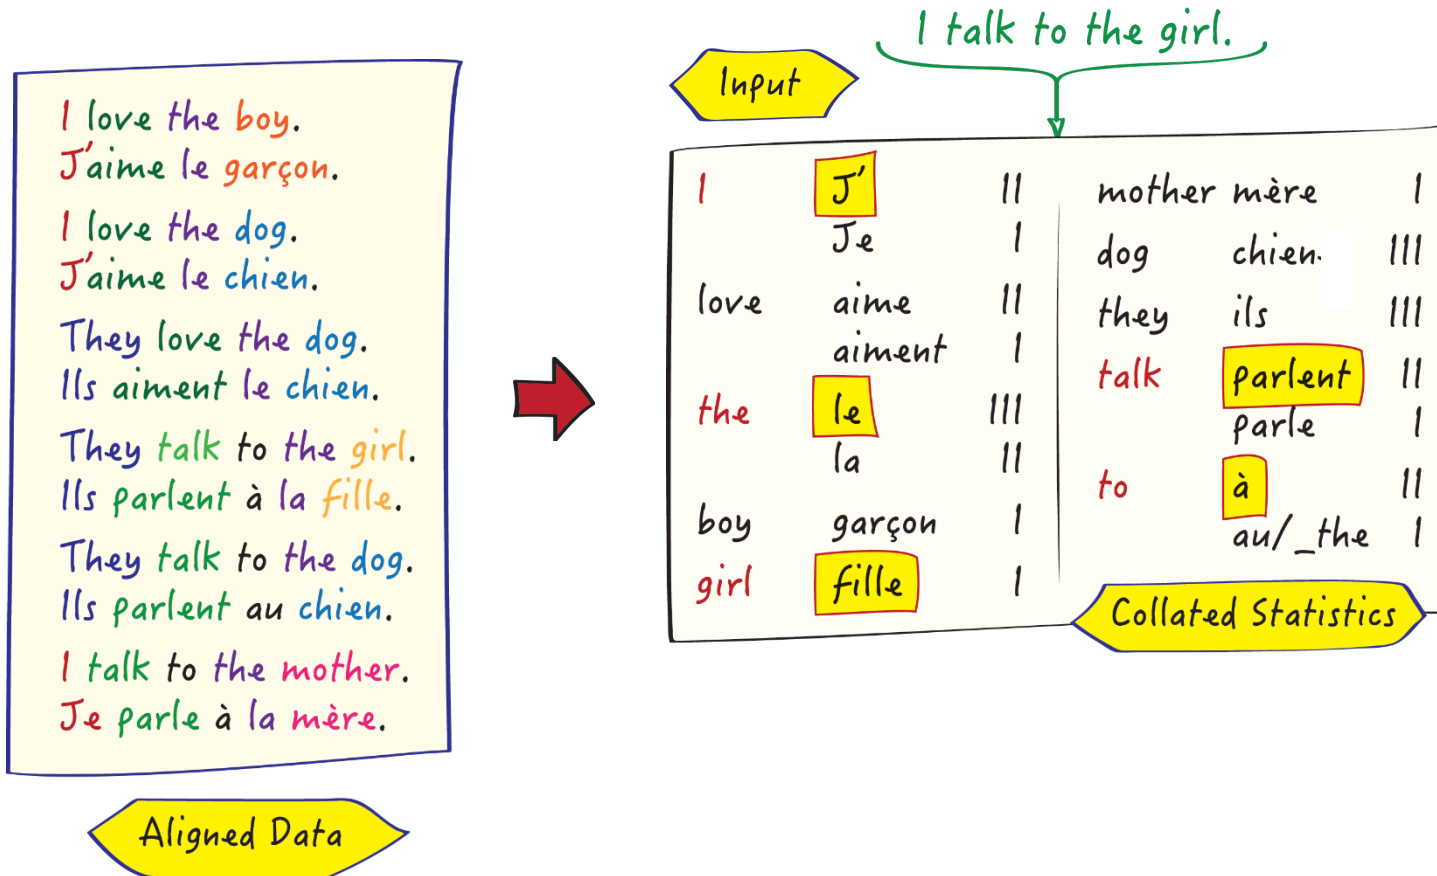 I talk to the girl.
Input
I love the boy.
J'aime le garçon.
I love the dog.
J'aime le chien.
They love the dog.
Ils aiment le chien.
They talk to the girl.
Ils parlent à la fille.
They talk to the dog.
Ils parlent au chien.
I talk to the mother.
Je parle à la mère.
Aligned Data
I J' II
Je I
love aime II
aiment I
the le III
la II
boy garçon I
girl fille I
mother mère I
dog chien III
they ils III
talk parlent II
parle I
to à II
au/_the I
Collated Statistics